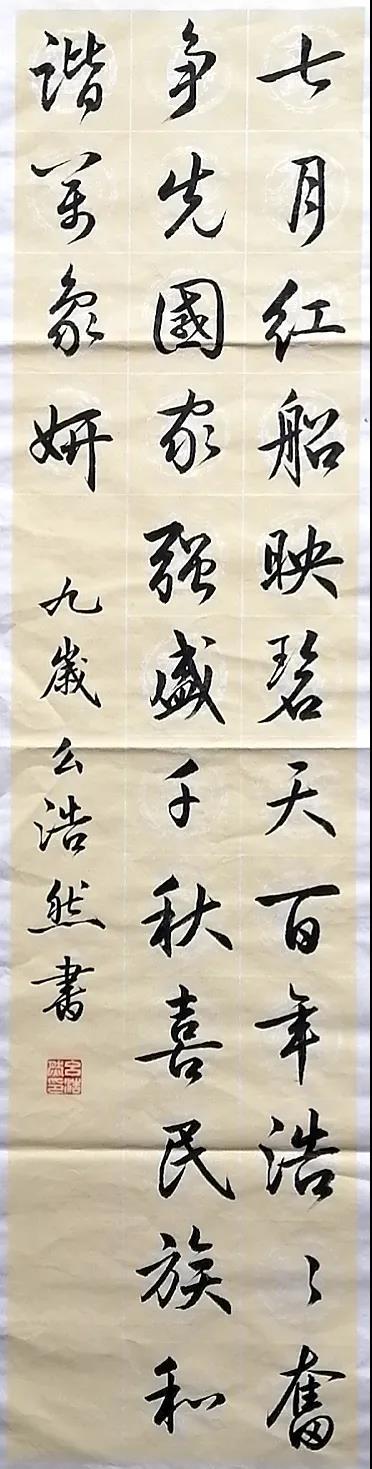 七月红船映碧天百年浩々奋
争先國家强盛千秋喜民族和
谐万象妍
九歲公浩然書